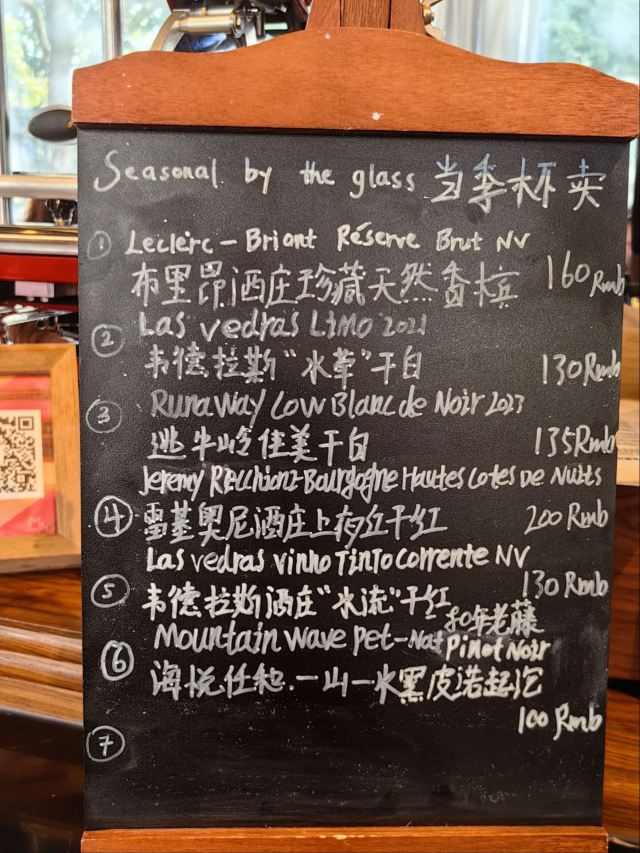 Seasonal by the glass 当季杯卖
① Leclerc-Briant Réserve Brut NV
布里昂酒庄珍藏天然香槟 160Rmb
② Las vedras Limo 2021
韦德拉斯“水草”干白 130Rmb
③ Runaway Cow Blanc de Noir 2023
逃牛岭佳美干白 135Rmb
Jeremy Recchione Bourgogne Hautes Cotes De Nuits
④ 雷基奥尼酒庄上夜丘干红 200Rmb
Las vedras vinho Tinto Corrente NV
⑤ 韦德拉斯酒庄“水流”干红 130Rmb
80年老藤
Mountain Wave Pet-Nat Pinot Noir
⑥ 海悦任和·一山一水黑皮诺起泡
100Rmb
⑦